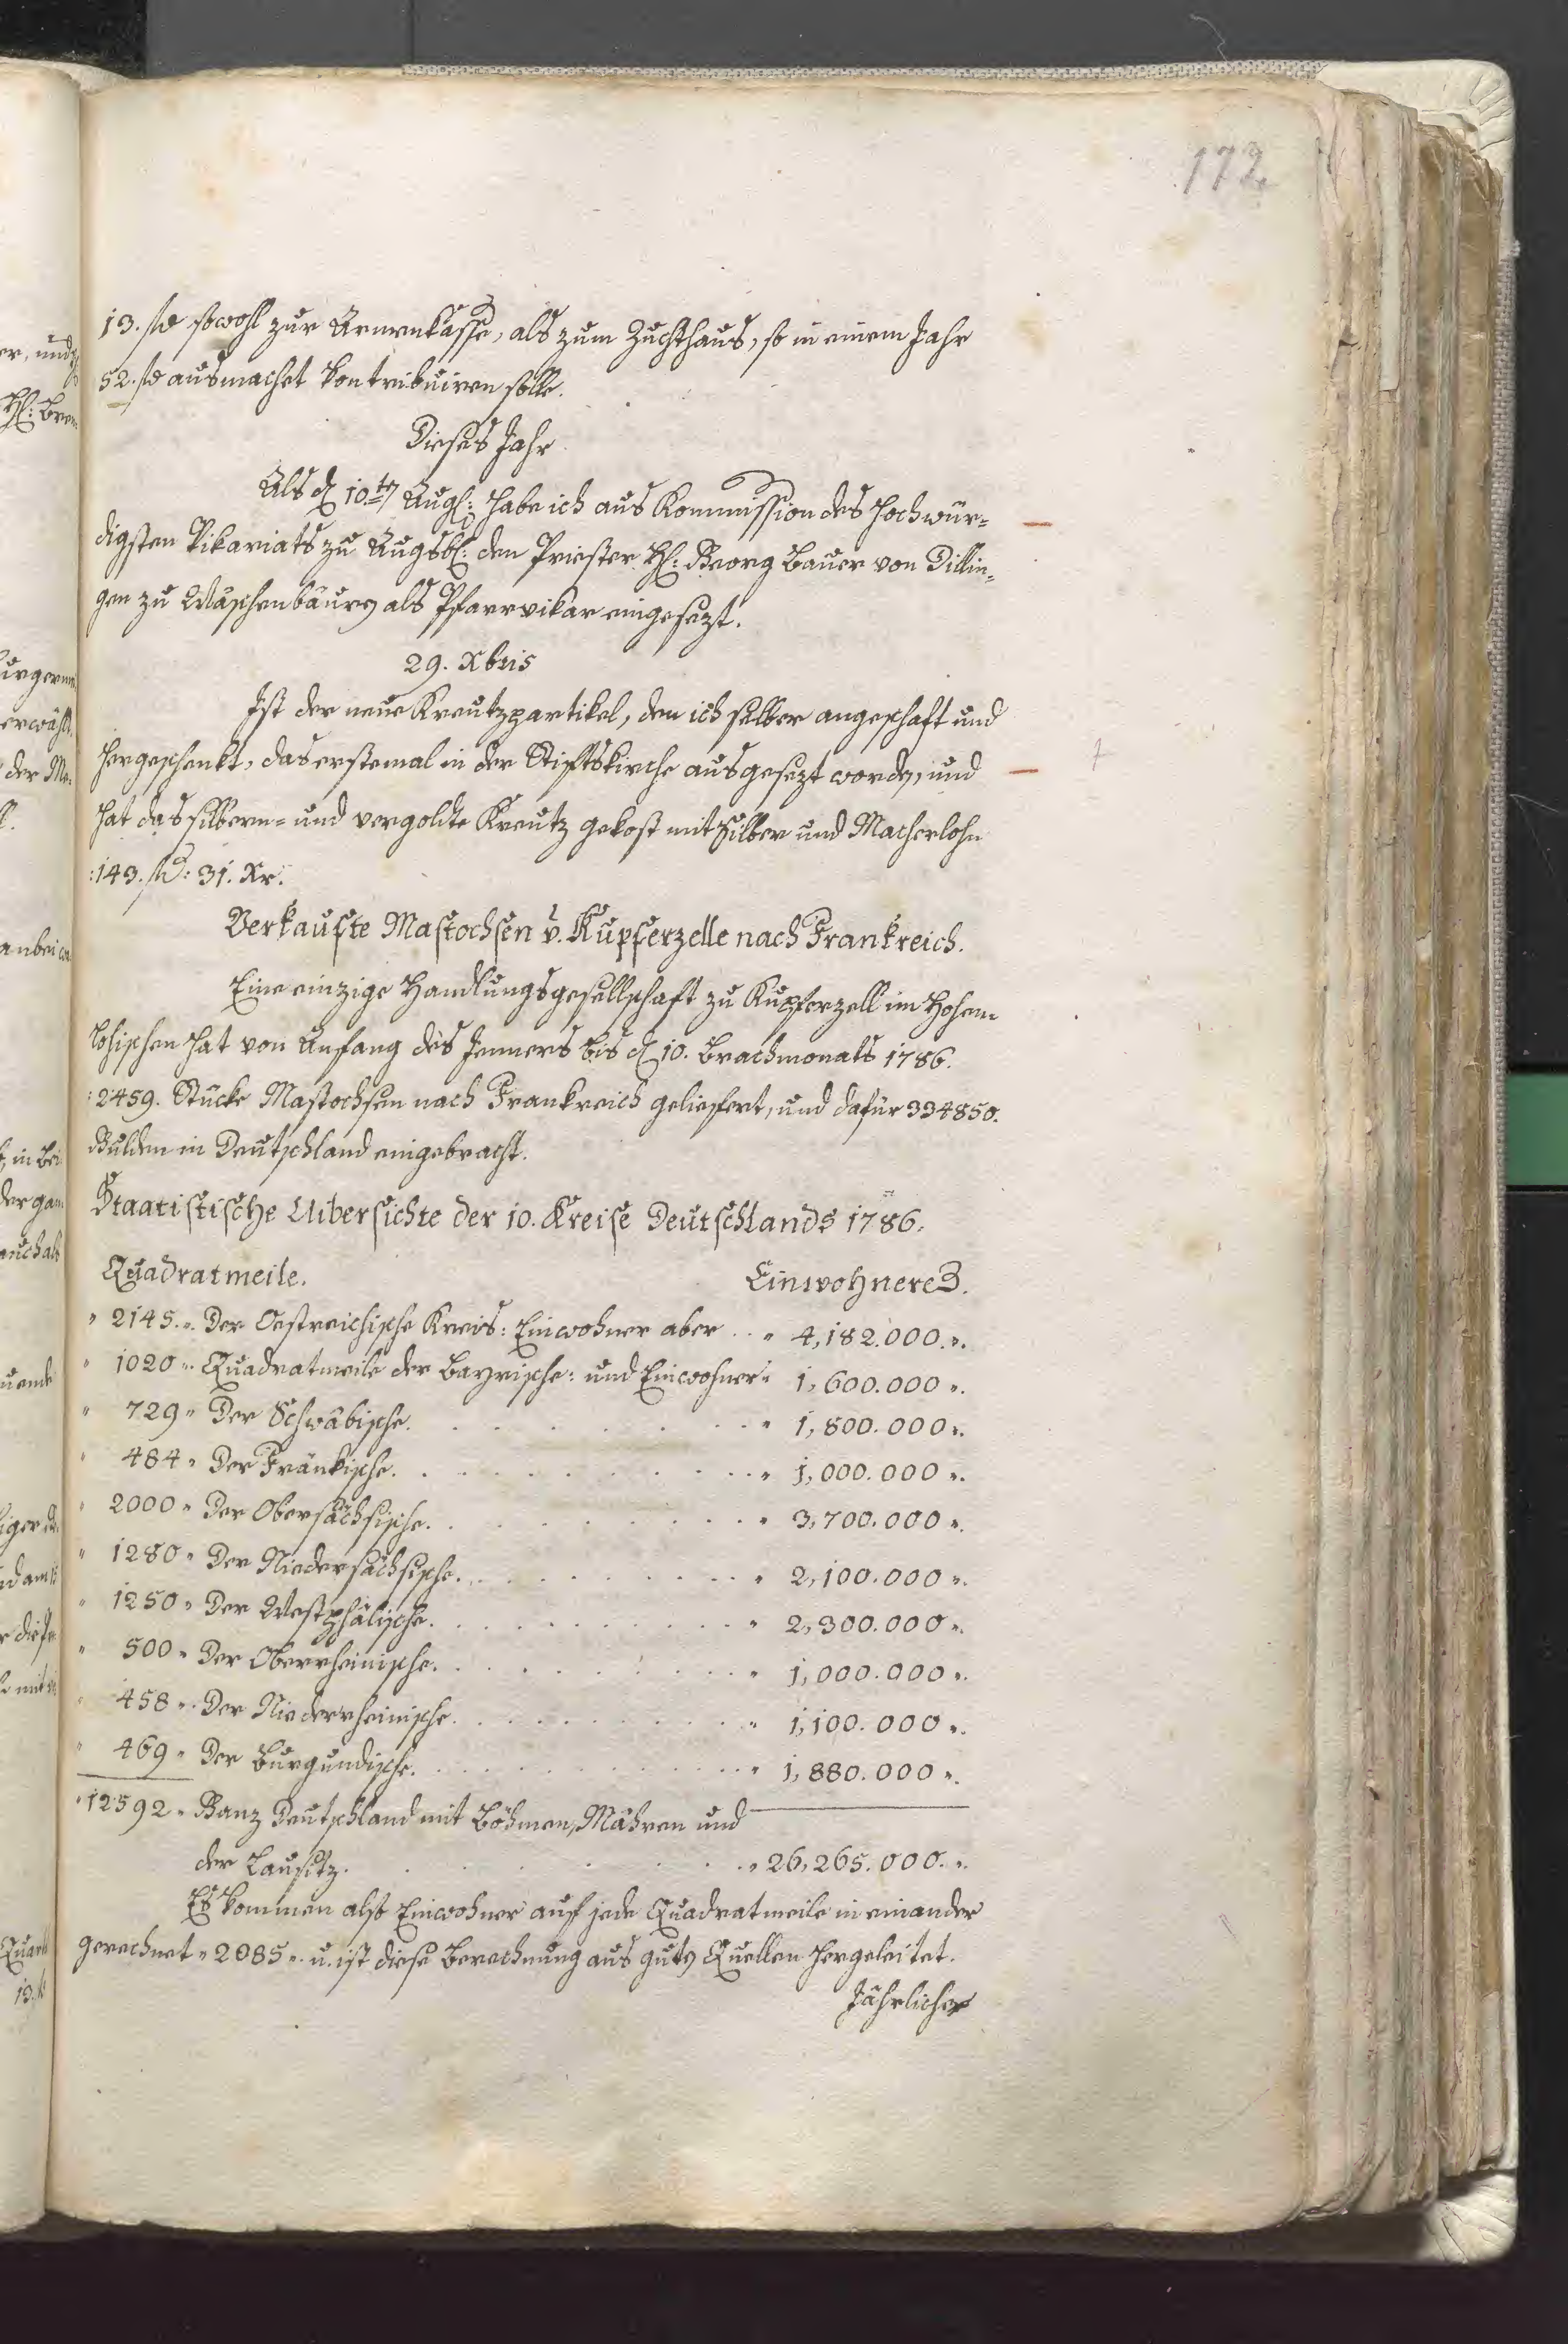 172
13. fl sowohl zur Armenkasse, als zum Zuchthaus, so in einem Jahr
52. fl ausmachet kontribuiren solle.
Dieses Jahr
Als d 10.t Augs: habe ich aus Kommission des Hochwür=
digsten Vikariats zu Augsb: den Priester H: Georg Bauer von Dillin=
gen zu Wäschenbäurn als Pfarrvikar eingesezt.
29. Xbris
Ist der neue Kreutzpartikel, den ich selber angeschaft und
hergeschenkt, das erstemal in der Stiftskirche ausgesezt worden, und
hat das silbern= und vergoldte Kreutz gekost mit Silber und Macherlohn
:143. fl: 31. Xr.
Verkaufte Mastochsen v. Kupferzelle nach Frankreich.
Eine einzige Handlungsgesellschaft zu Kupferzell im Hohen=
lohischen hat von Anfang des Jenners bis d 10. Brachmonats 1786.
:2459. Stücke Mastochsen nach Frankreich geliefert, und dafür 334850.
Gulden in Deutschland eingebracht.
Staatistische Uibersichte der 10. Kreise Deutschlands 1786.
Quadratmeile. Einwohnere
" 2145 ". Der Oestreichische Kreis: Einwohner aber . . " 4,182.000 ".
" 1020 ". Quadratmeile der Bayrische: und Einwohner " 1,600.000 ".
" 729 " Der Schwäbische. " 1,800.000 ".
" 484 " Der Fränkische. " 1,000.000 ".
" 2000 " Der Obersächsische. " 3,700.000 ".
" 1280 " Der Niedersächsische. " 2,100.000 ".
" 1250 " Der Westphälische. " 2,300.000 ".
" 500 " Der Oberrheinische. " 1,000.000 ".
" 458 ". Der Niederrheinische. " 1,100.000 ".
" 469 " Der Burgundische. " 1,880.000 ".
" 12592 " Ganz Deutschland mit Böhmen, Mähren und
der Lausitz. " 26,265.000. ".
Es kommen also Einwohner auf jede Quadratmeile in einander
gerechnet " 2085 ". u. ist diese Berechnung aus guten Quellen hergeleitet.
Jährliche